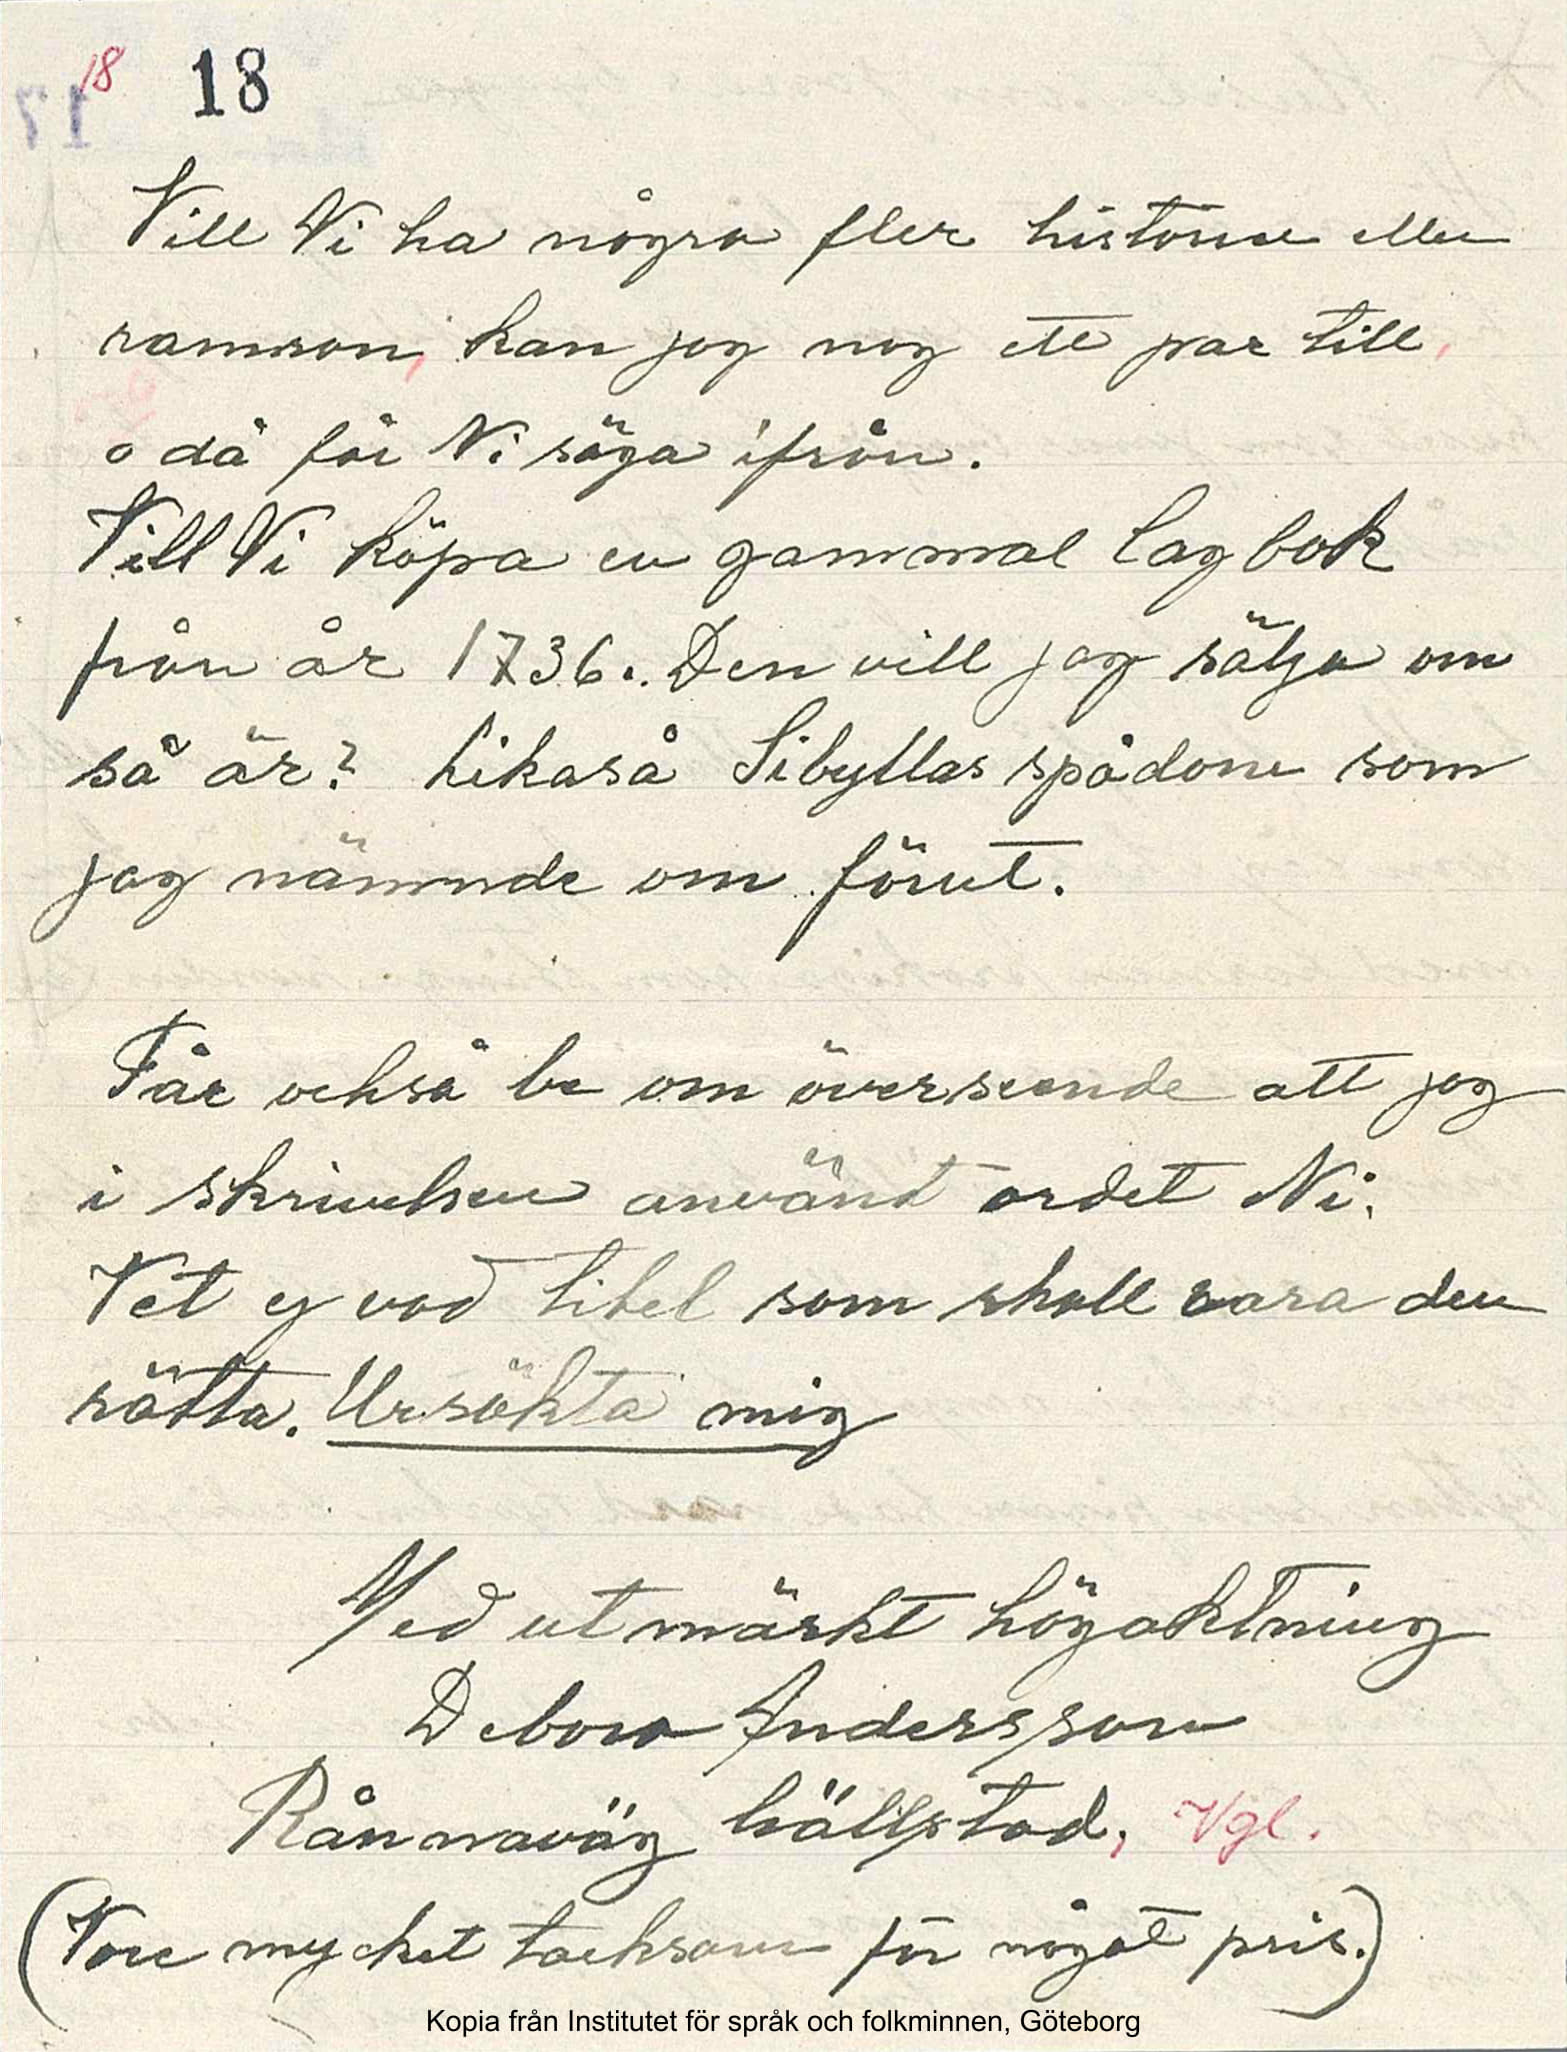 18 18
Vill Ni ha några fler historier eller
ramsor, kan jag nog ett par till,
o då får Ni säga ifrån.
Vill Ni köpa en gammal lagbok
från år 1736. Den vill jag sälja om
så är? Likaså Sibyllas spådom som
jag nämnde om förut.
Får också be om överseende att jag
i skrivelsen använt ordet Ni.
Vet ej vad titel som skall vara den
rätta. Ursäkta mig
Med utmärkt högaktning
Debora Andersson
Rånnaväg hällstad, Vgl.
(Vore mycket tacksam för något pris.)
Kopia från Institutet för språk och folkminnen, Göteborg